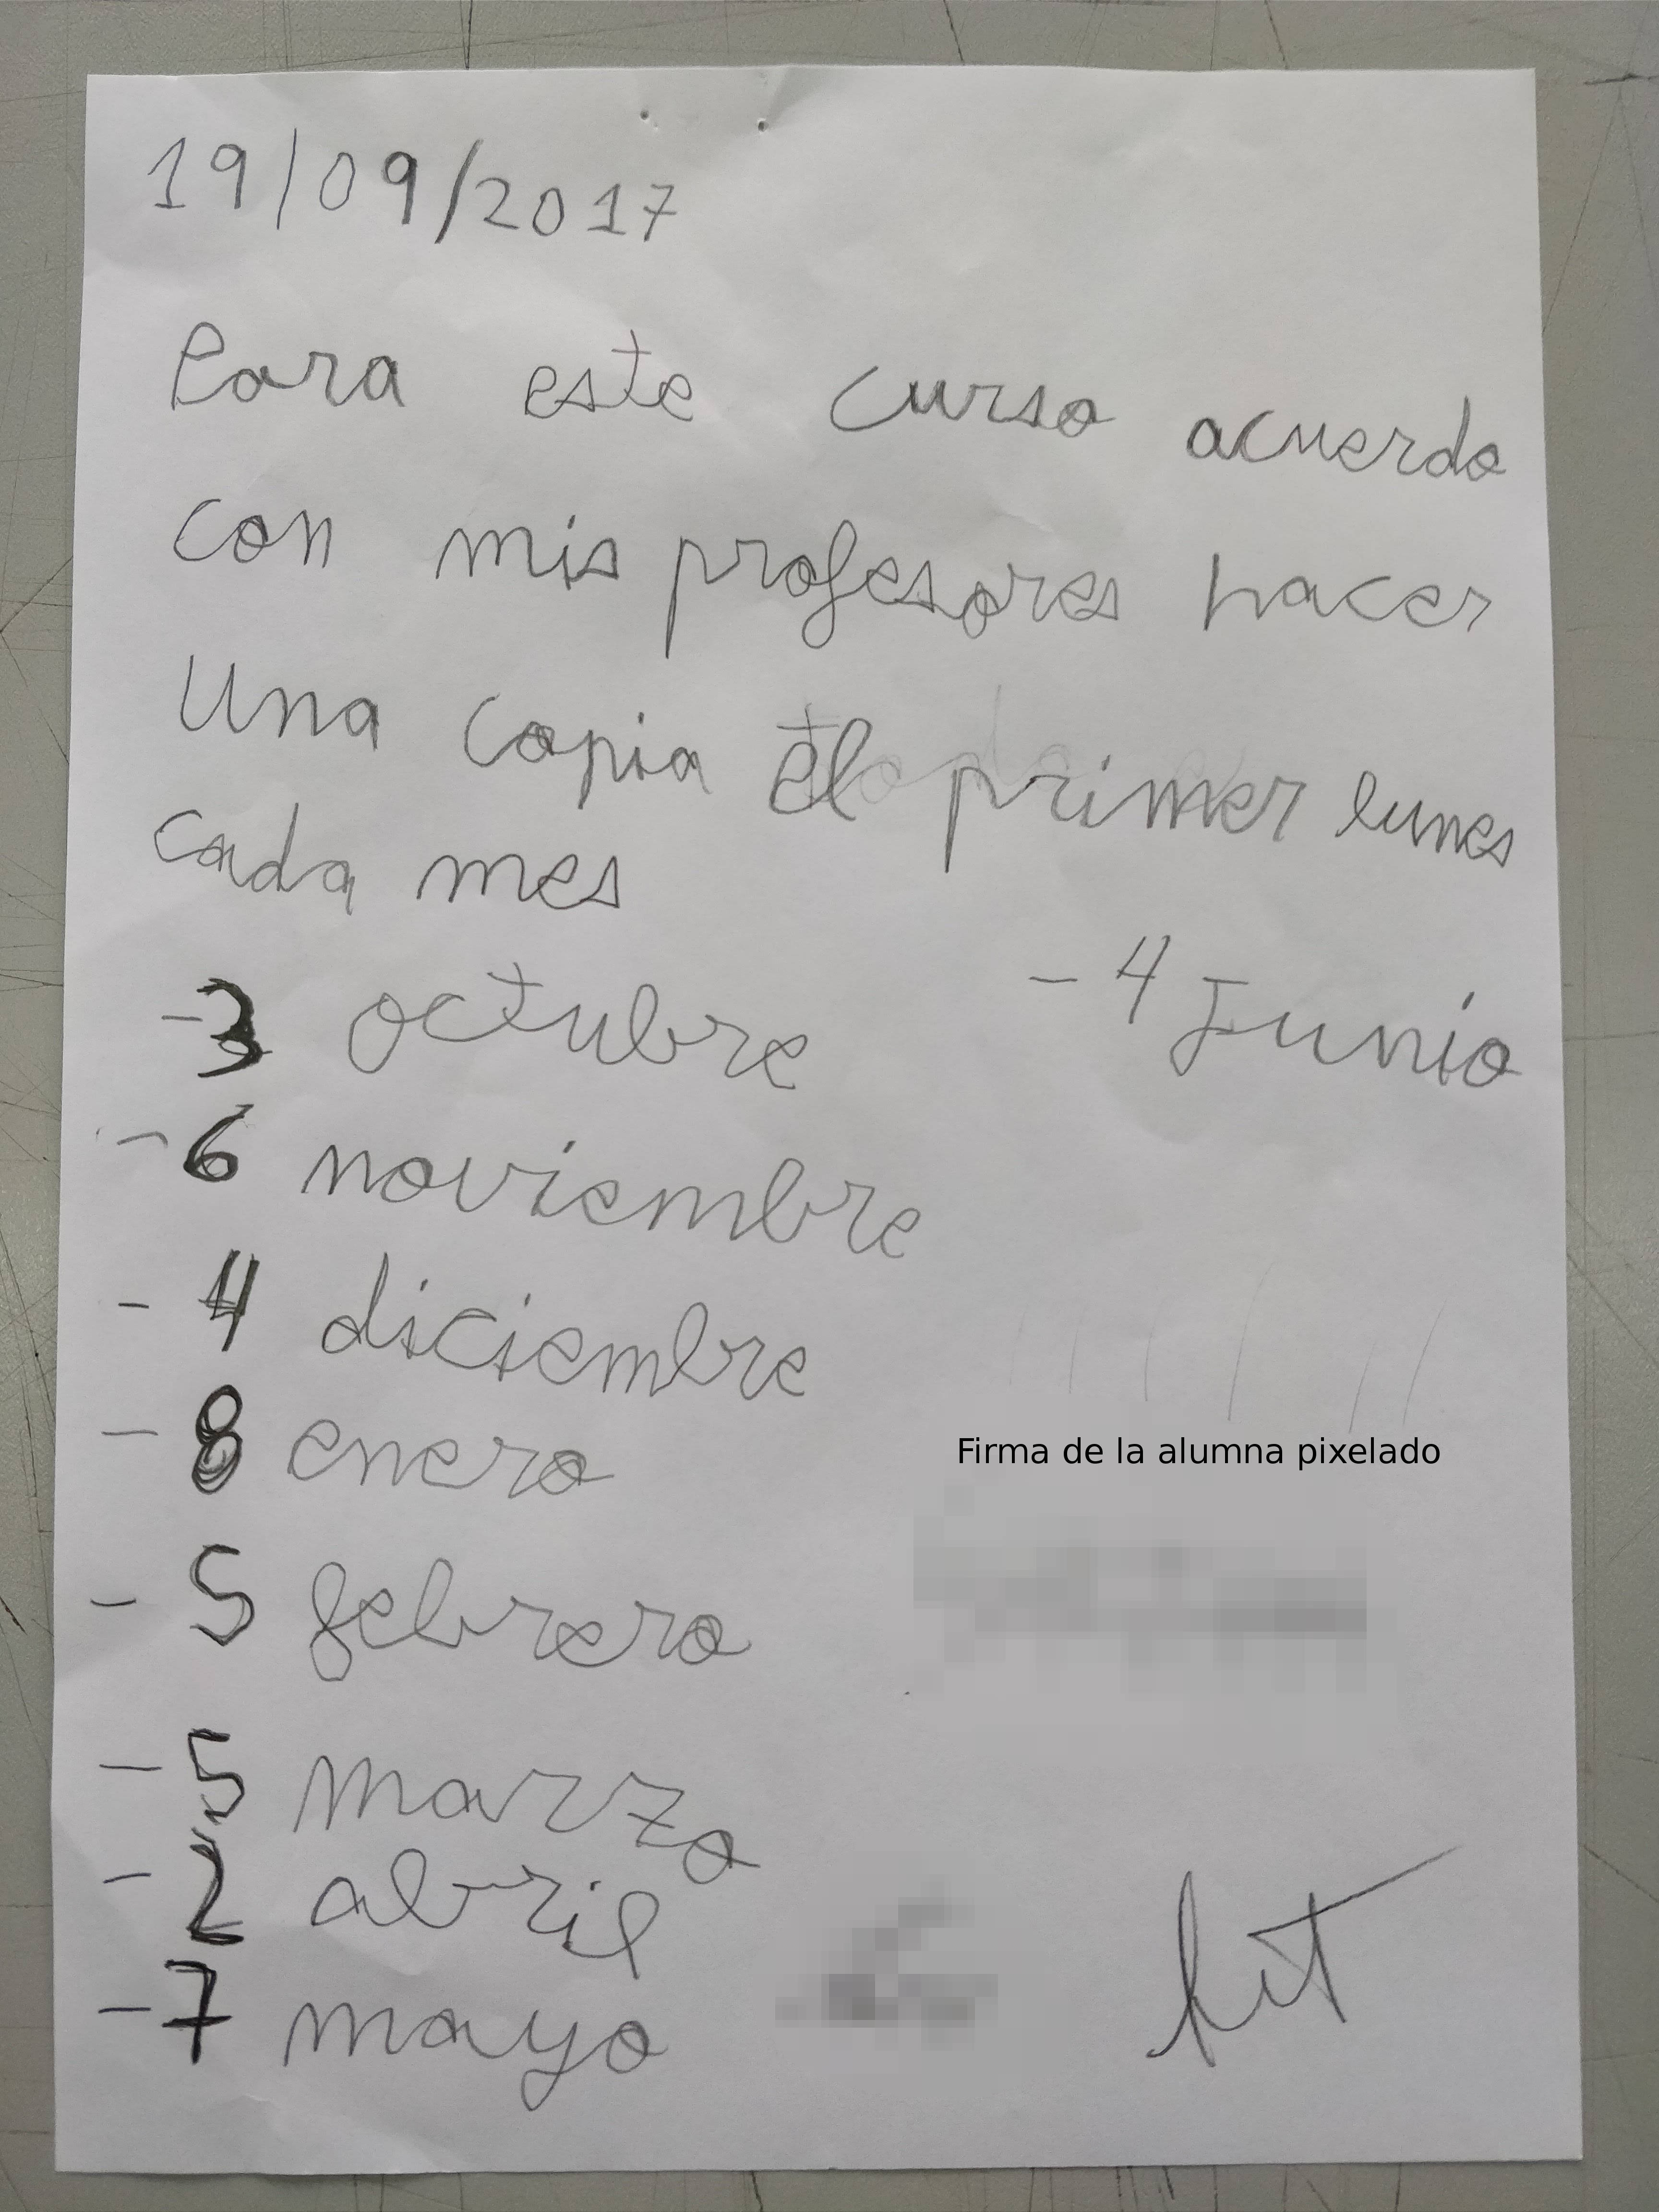 19/09/2017
Para este curso acuerdo
con mis profesores hacer
Una copia el primer lunes
cada mes
-3 octubre
- 4 Junio
- 6 noviembre
- 4 diciembre
- 8 enero
Firma de la alumna pixelado
- 5 febrero
- 5 marzo
- 2 abril
- 7 mayo